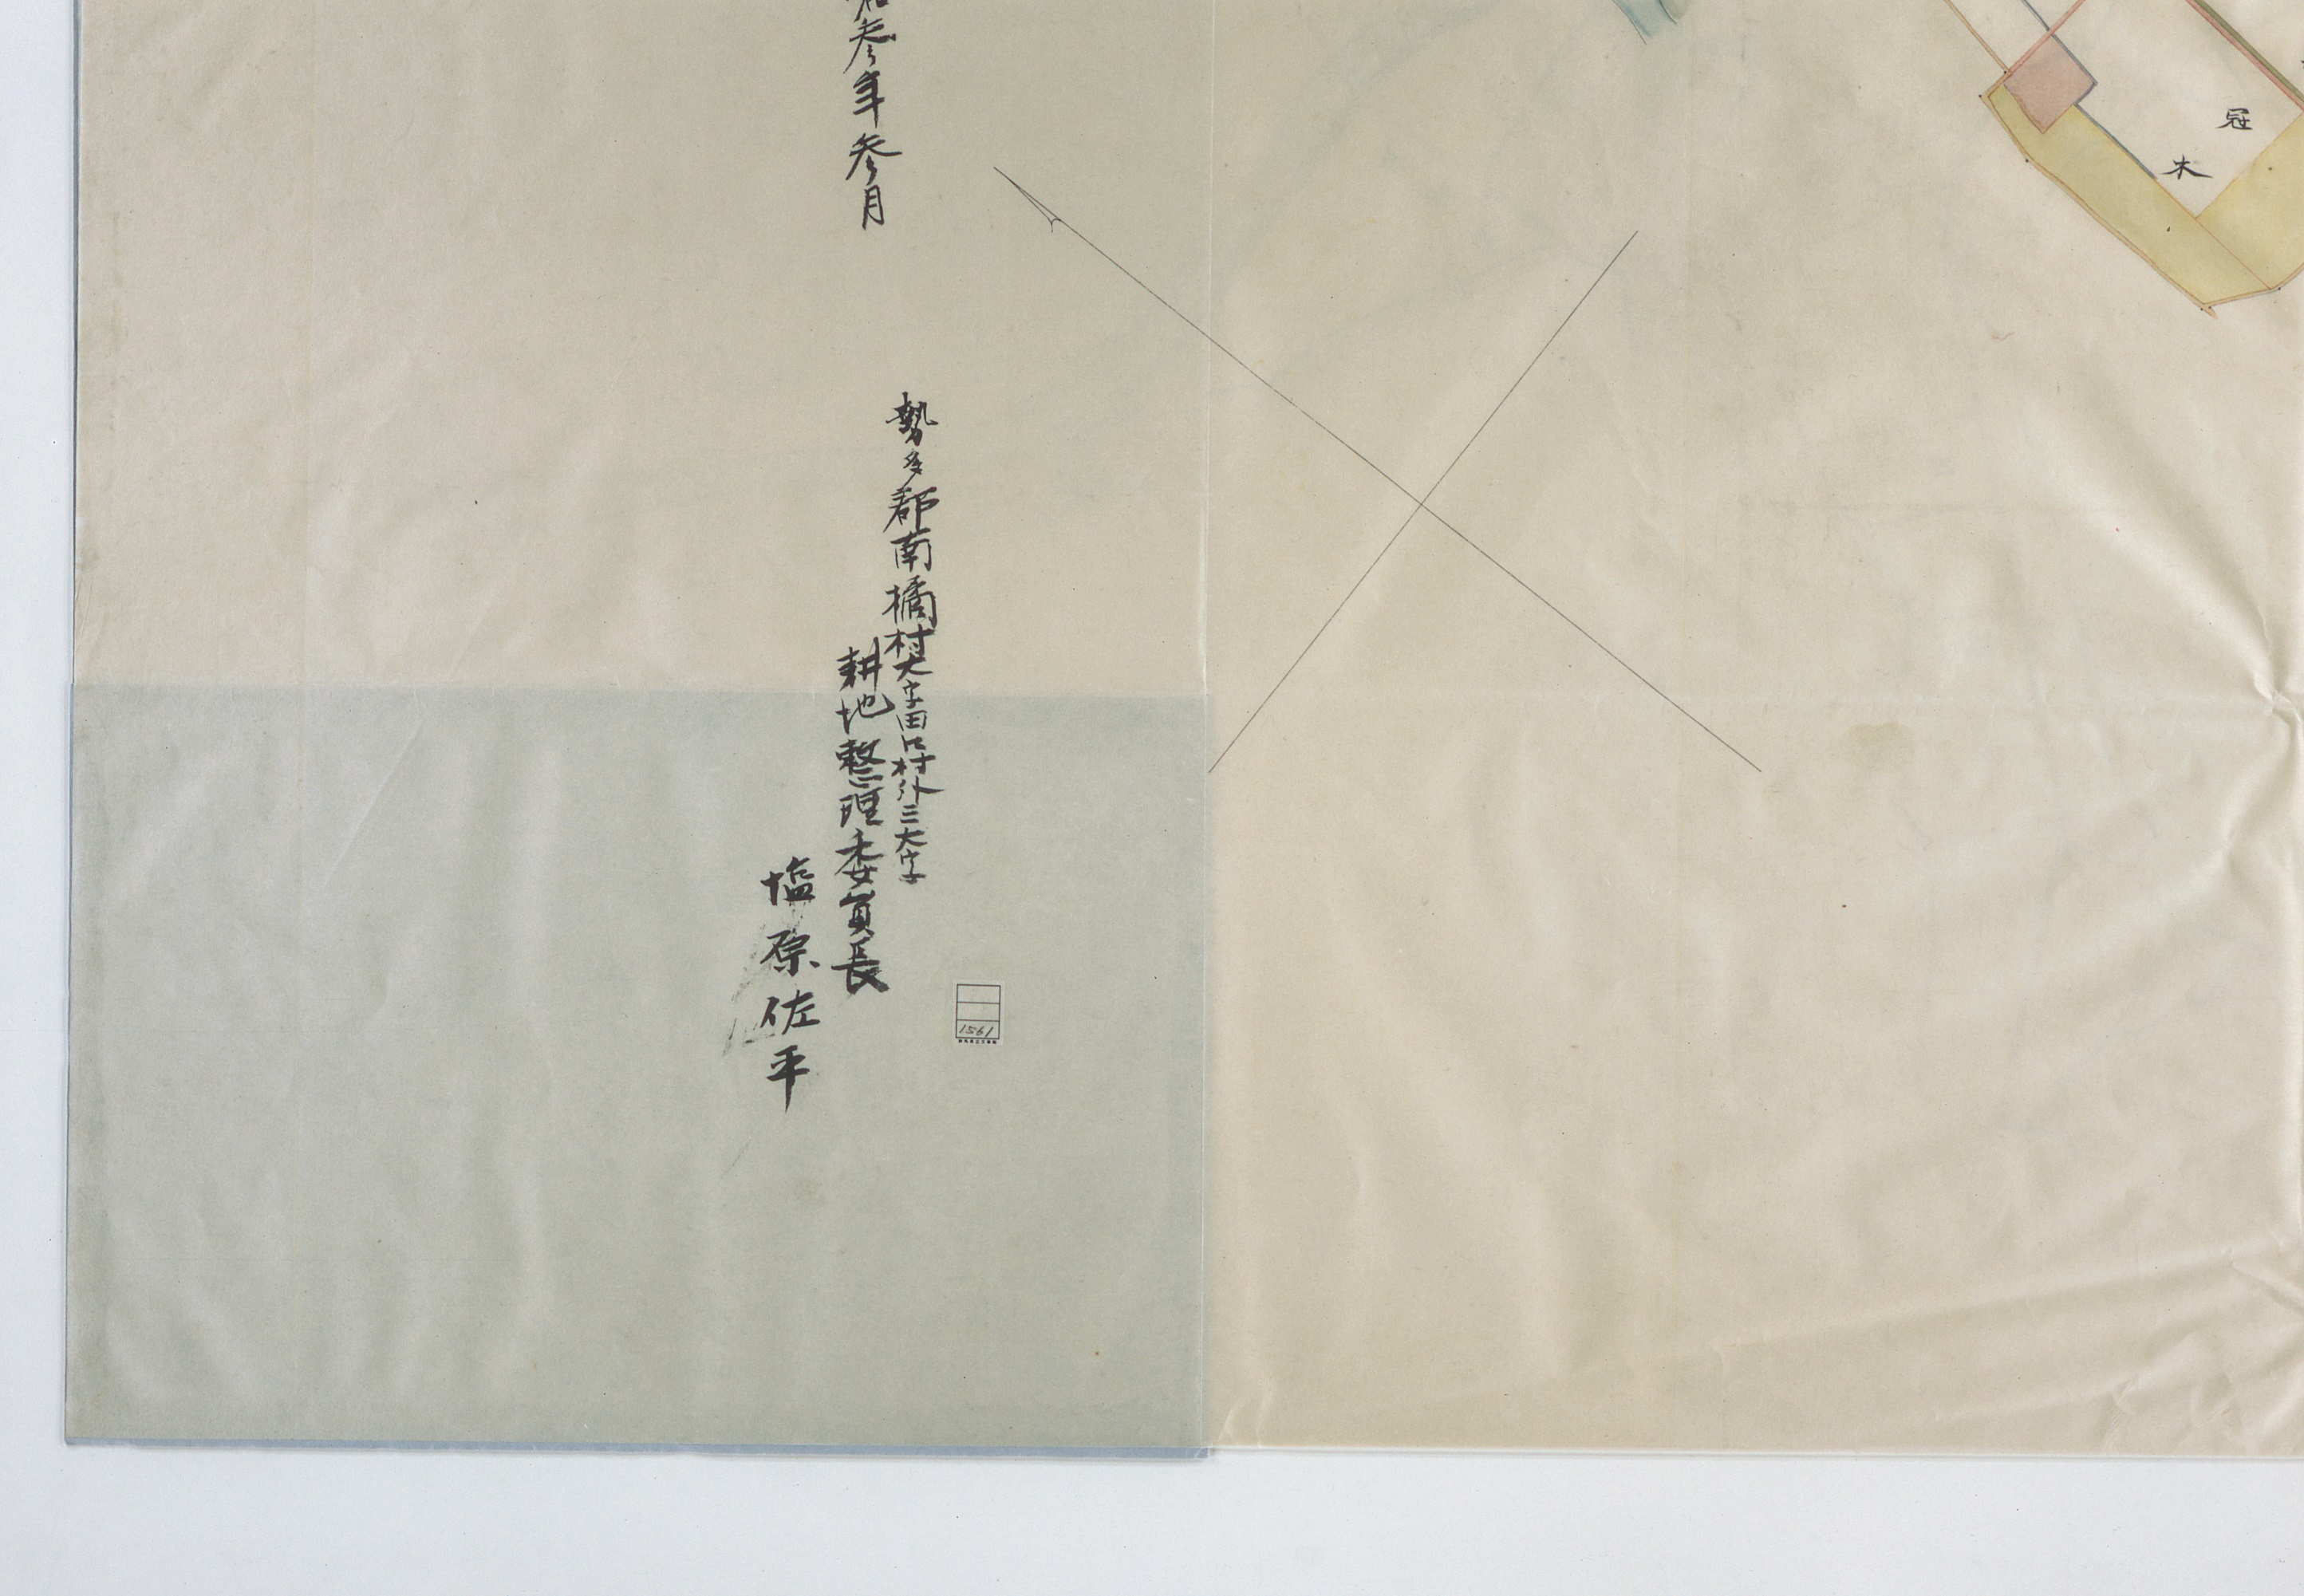 冠木
和参年参月
勢多郡南橘村大字田口村外三大字
耕地整理委員長
塩原佐平
1561